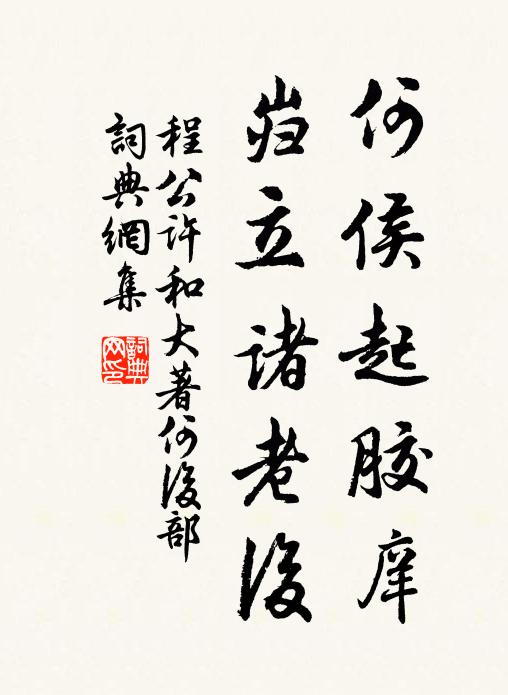 何侯起胶庠
岿立诸老后
程公许和大著何后部
词典網集
詞典网印